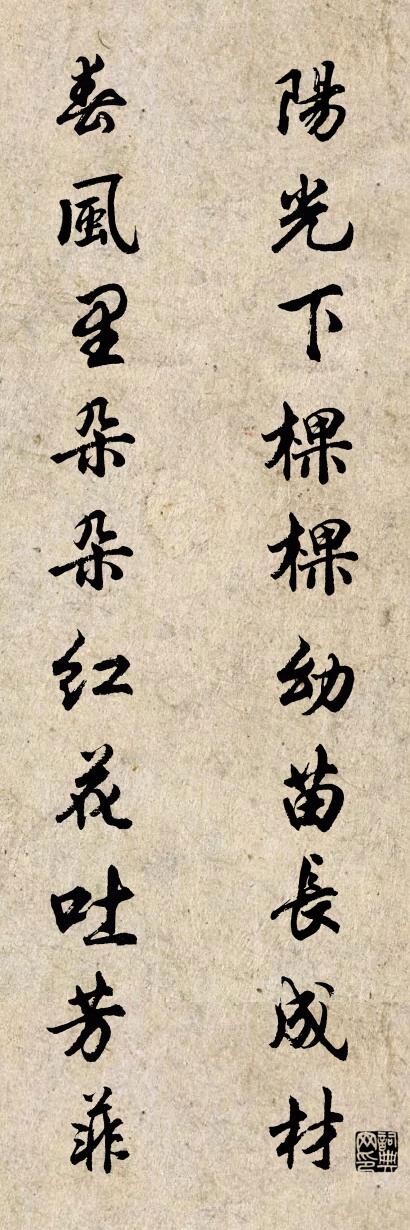 陽光下棵棵幼苗長成材
春風里朵朵红花吐芳菲
詞典网印